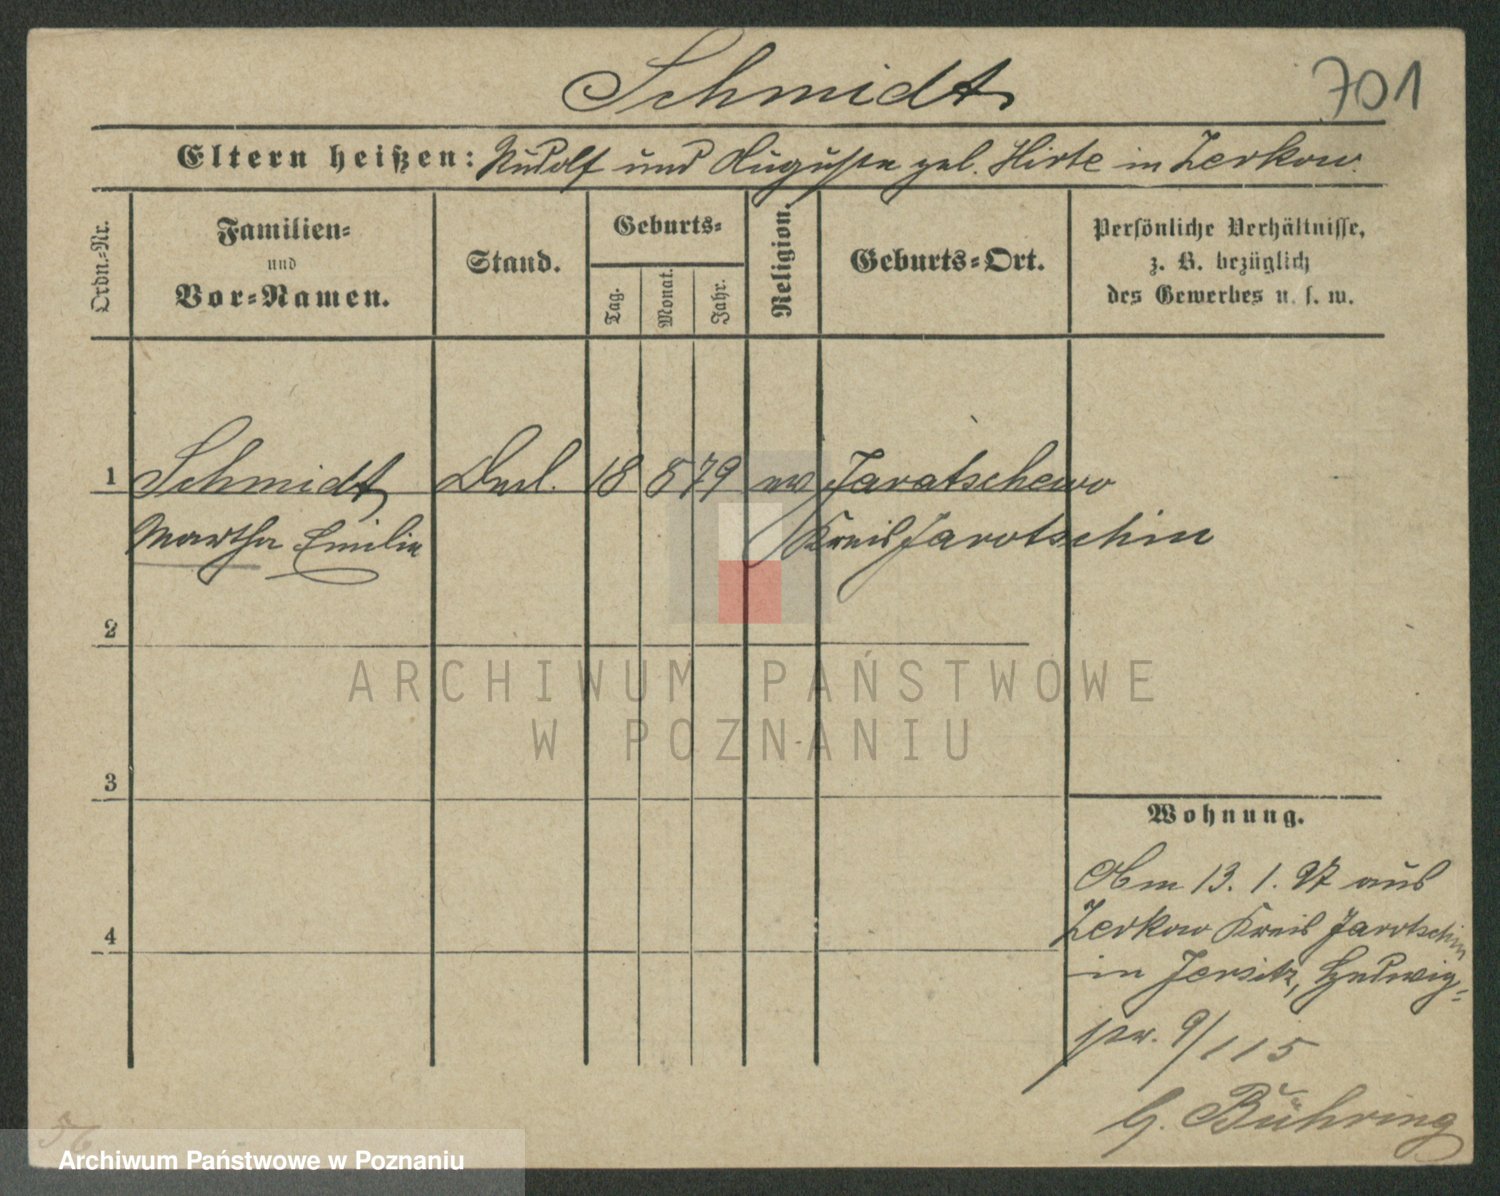 Schmidt
701
Eltern heißen: Rudolf und Auguste geb. Hirte in Zerkow.
Ordn.-Nr.
Familien-
und
Vor-Namen.
Stand.
Geburts-
Tag.
Monat.
Jahr.
Religion.
Geburts-Ort.
Persönliche Verhältnisse,
z. B. bezüglich
des Gewerbes u. s. w.
1
Schmidt
18 8 79 ev Jaratschewo
Martha Emilie
Kreis Jarotschin
2
ARCHIWUM PAŃSTWOWE
W POZNANIU
3
Wohnung.
13. 1. 97 aus
Zerkow Kreis Jarotschin
4
in Jersitz, Hedwig-
str. 9/115
Bühring
56
Archiwum Państwowe w Poznaniu